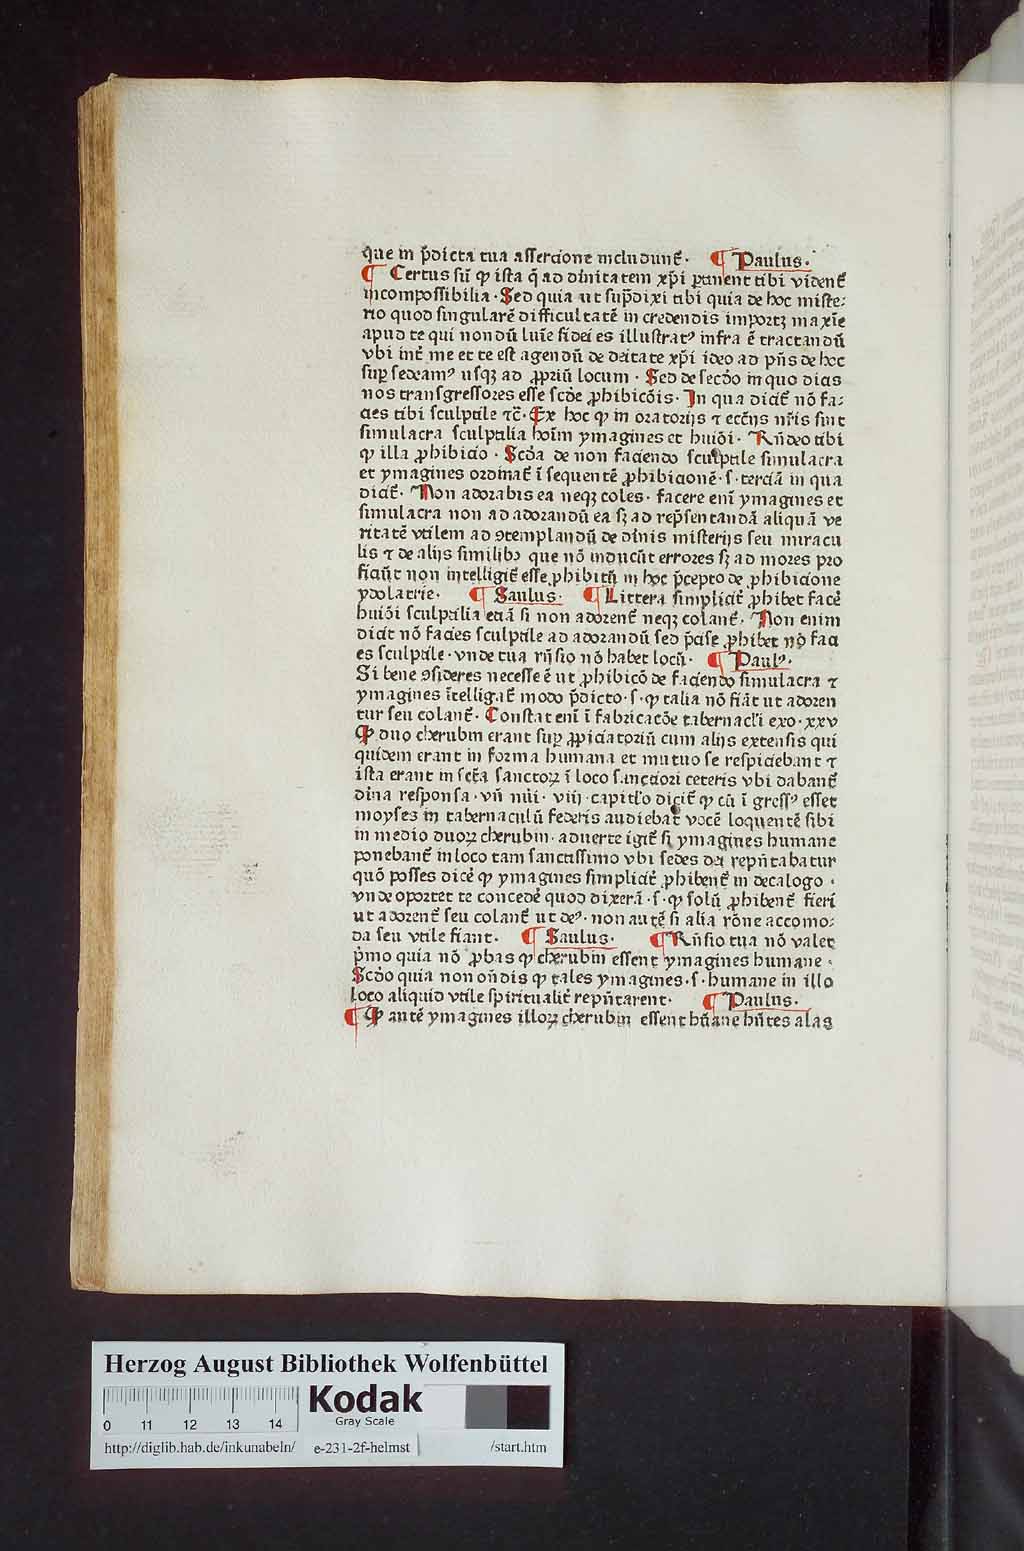 que in p̄dicta tua assercione includunt᷑. ¶ Paulus.
¶ Certus sū ꝙ ista q̄ ad diuītatem xp̄i ꝑtinent tibi vident᷑
incompossibilia · Sed quia ut sup̄dixi tibi quia de hoc miste⸗
rio quod singularē difficultatē in credendis importꝫ maxīe
apud te qui nondū luīe fidei es illustratꝰ infra ē tractandū
vbi int̄ me et te est agendū de deitate xp̄i ideo ad pn̄s de hoc
suꝑ sedeamꝰ usqꝫ ad ꝓpriū locum · Sed de secd̄o in quo dicis
nos transgressores esse scd̄e ꝓhibicōis. In qua dicit᷑ nō fa⸗
cies tibi sculptile ⁊c̄. Ex hoc ꝙ in oratorijs ⁊ ecc̄ijs nr̄is sint
simulacra sculptilia hoīm ymagines et huiōi. Rn̄deo tibi
ꝙ illa ꝓhibicio · Scd̄a de non faciendo sculptile simulacra
et ymagines ordinat᷑ ī sequentē ꝓhibicionē · s · terciā in qua
dicit᷑. Non adorabis ea neqꝫ coles. facere enī ymagines et
simulacra non ad adorandū ea sꝫ ad rep̄sentandā aliquā ve
ritatē vtilem ad ꝯtemplandū de diīnis misterijs seu miracu
lis ⁊ de alijs similibꝫ que nō inducūt errores sꝫ ad mores pro
ficiūt non intelligit᷑ esse ꝓhibitū in hoc p̄cepto de ꝓhibicione
ydolatrie. ¶ Saulus. ¶ Littera simplicit̄ ꝓhibet facē
huiōi sculptilia eciā si non adorent᷑ neqꝫ colant᷑. Non enim
dicit nō facies sculptile ad adorandū sed p̄cise ꝓhibet nō faci
es sculptile · vnde tua rn̄sio nō habet locū. ¶ Paulꝰ.
Si bene ꝯsideres necesse ē ut ꝓhibicō de faciendo simulacra ⁊
ymagines ītelligat᷑ modo p̄dicto · s · ꝙ talia nō fiāt ut adoren
tur seu colant᷑. Constat enī ī fabricacōe tabernacl̄i exo · xxv
Ꝙ duo cherubin erant suꝑ ꝓpiciatoriū cum alijs extensis qui
quidem erant in forma humana et mutuo se respiciebant ⁊
ista erant in scт̄a sanctoꝝ ī loco sanctiori ceteris vbi dabant᷑
diīna responsa · vn̄ nūi · viij · capitl̄o dicit᷑ ꝙ cū ī gressꝰ esset
moyses in tabernaculū federis audiebat vocē loquentē sibi
in medio duoꝝ cherubin. aduerte igit᷑ si ymagines humane
ponebant᷑ in loco tam sanctissimo vbi sedes dei repn̄tabatur
quō posses dicē ꝙ ymagines simplicit̄ ꝓhibent᷑ in decalogo ·
vnde oportet te concedē quod dixerā · s · ꝙ solū ꝓhibent᷑ fieri
ut adorent᷑ seu colant᷑ ut deꝰ. non autē si alia rōne accomo⸗
da seu vtile fiant. ¶ Saulus. ¶ Rn̄sio tua nō valet
p̄mo quia nō ꝓbas ꝙ cherubin essent ymagines humane ·
Scd̄o quia non on̄dis ꝙ tales ymagines · s · humane in illo
loco aliquid vtile spiritualit̄ repn̄tarent. ¶ Paulus.
¶ Ꝙ autē ymagines illoꝝ cherubin essent hūane hn̄tes alas
Herzog August Bibliothek Wolfenbüttel
Kodak
Gray Scale
0 11 12 13 14
http://diglib.hab.de/inkunabeln/ e-231-2f-helmst /start.htm